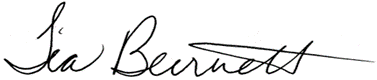 Tia Burnett